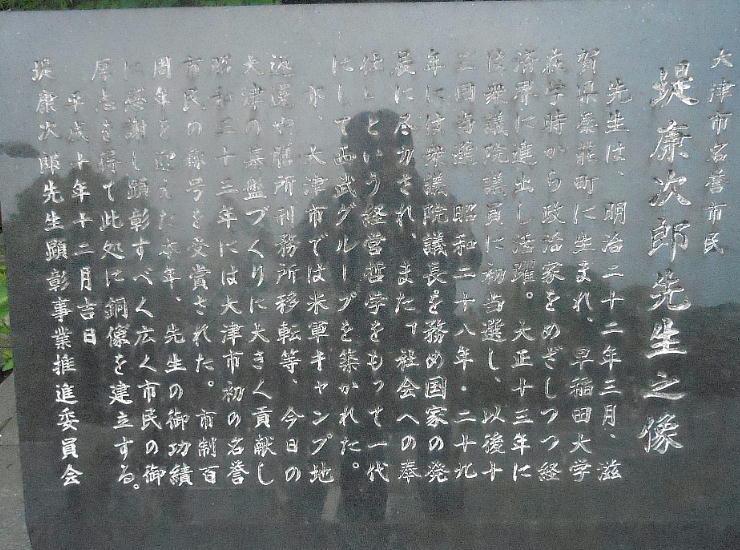 大津市名誉市民
堤康次郎先生之像
先生は、明治二十二年三月、滋
賀県秦荘町に生まれ、早稲田大学
在学時から政治家をめざしつつ経
済界に進出し活躍。大正十三年に
は衆議院議員に初当選し、以後十
三回当選、昭和二十八年・二十九
年には衆議院議長を務め国家の発
展に尽力され、また「社会への奉
仕」という経営哲学をもって一代
にして西武グループを築かれた。
亦、大津市では米軍キャンプ地
返還や膳所刑務所移転等、今日の
大津の基盤づくりに大きく貢献し
昭和三十三年には大津市初の名誉
市民の称号を受賞された。市制百
周年を迎えた本年、先生の御功績
に感謝し顕彰すべく広く市民の御
厚志を得て此処に銅像を建立する。
平成十年十二月吉日
堤康次郎先生顕彰事業推進委員会